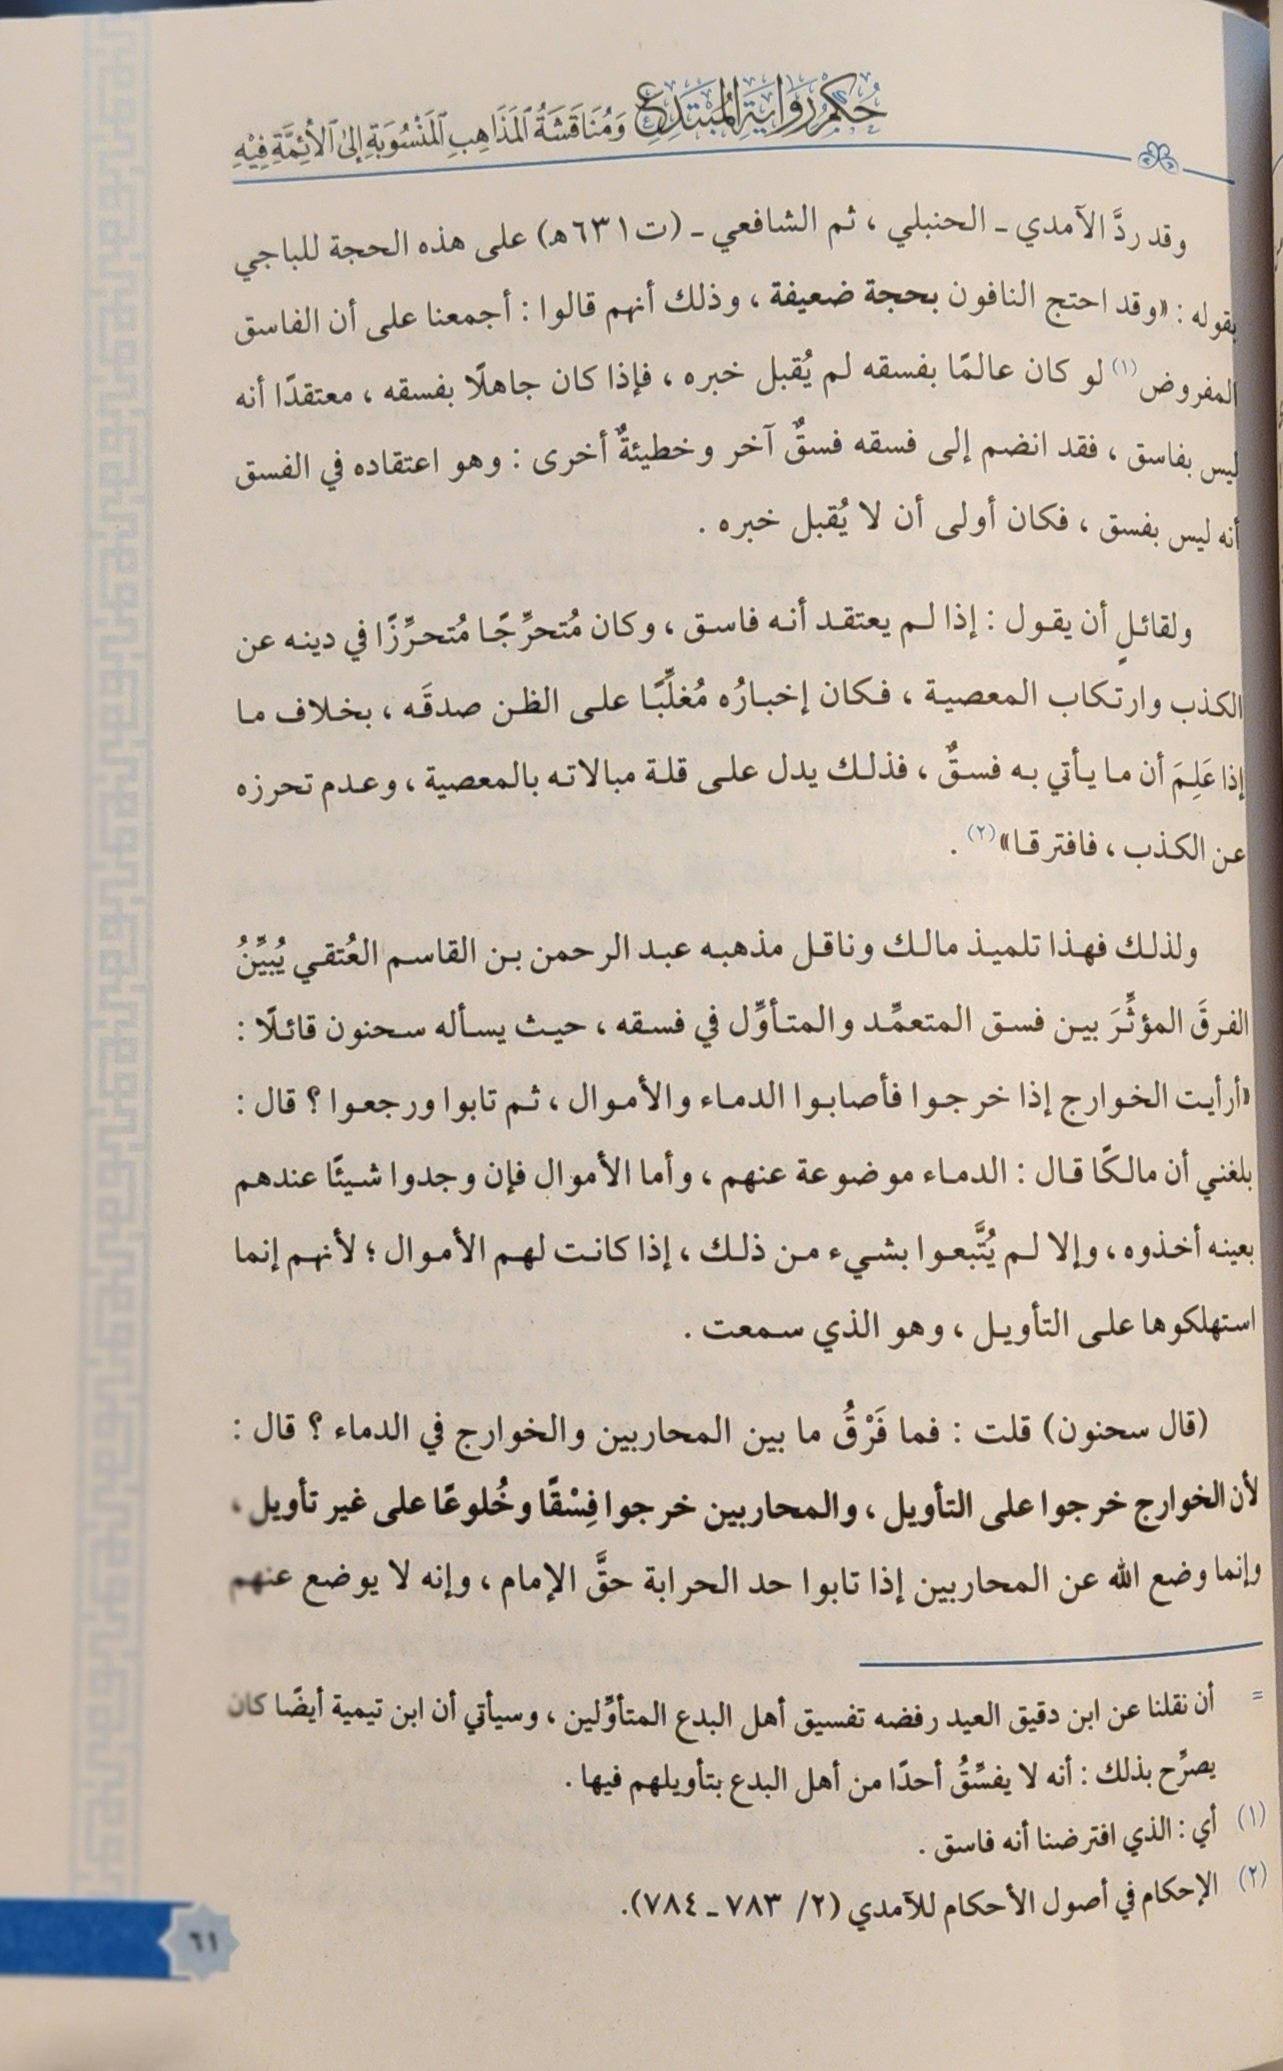 حُكْمُ رِوَايَةِ المُبْتَدِعِ وَمُنَاقَشَةُ المَذَاهِبِ المَنْسُوبَةِ إِلى الأَئِمَّةِ فِيْهِ
وقد ردَّ الآمدي ـ الحنبلي ، ثم الشافعي ـ (ت٦٣١هـ) على هذه الحجة للباجي
بقوله : «وقد احتج النافون بحجة ضعيفة ، وذلك أنهم قالوا : أجمعنا على أن الفاسق
المفروض(١) لو كان عالمًا بفسقه لم يُقبل خبره ، فإذا كان جاهلًا بفسقه ، معتقدًا أنه
ليس بفاسق ، فقد انضم إلى فسقه فسقٌ آخر وخطيئةٌ أخرى : وهو اعتقاده في الفسق
أنه ليس بفسق ، فكان أولى أن لا يُقبل خبره .
ولقائلٍ أن يقول : إذا لم يعتقد أنه فاسق ، وكان مُتحرِّجًا مُتحرِّزًا في دينه عن
الكذب وارتكاب المعصية ، فكان إخبارُه مُغلِّبًا على الظن صدقَه ، بخلاف ما
إذا عَلِمَ أن ما يأتي به فسقٌ ، فذلك يدل على قلة مبالاته بالمعصية ، وعدم تحرزه
عن الكذب ، فافترقا»(٢) .
ولذلك فهذا تلميذ مالك وناقل مذهبه عبد الرحمن بن القاسم العُتقي يُبيِّنُ
الفرقَ المؤثِّرَ بين فسق المتعمِّد والمتأوِّل في فسقه ، حيث يسأله سحنون قائلًا :
«أرأيت الخوارج إذا خرجوا فأصابوا الدماء والأموال ، ثم تابوا ورجعوا ؟ قال :
بلغني أن مالكًا قال : الدماء موضوعة عنهم ، وأما الأموال فإن وجدوا شيئًا عندهم
بعينه أخذوه ، وإلا لم يُتَّبعوا بشيء من ذلك ، إذا كانت لهم الأموال ؛ لأنهم إنما
استهلكوها على التأويل ، وهو الذي سمعت .
(قال سحنون) قلت : فما فَرْقُ ما بين المحاربين والخوارج في الدماء ؟ قال :
لأن الخوارج خرجوا على التأويل ، والمحاربين خرجوا فِسْقًا وخُلوعًا على غير تأويل ،
وإنما وضع الله عن المحاربين إذا تابوا حد الحرابة حقَّ الإمام ، وإنه لا يوضع عنهم
= أن نقلنا عن ابن دقيق العيد رفضه تفسيق أهل البدع المتأوِّلين ، وسيأتي أن ابن تيمية أيضًا كان
يصرِّح بذلك : أنه لا يفسِّقُ أحدًا من أهل البدع بتأويلهم فيها .
(١) أي : الذي افترضنا أنه فاسق .
(٢) الإحكام في أصول الأحكام للآمدي (٢/ ٧٨٣ ـ ٧٨٤).
٦١